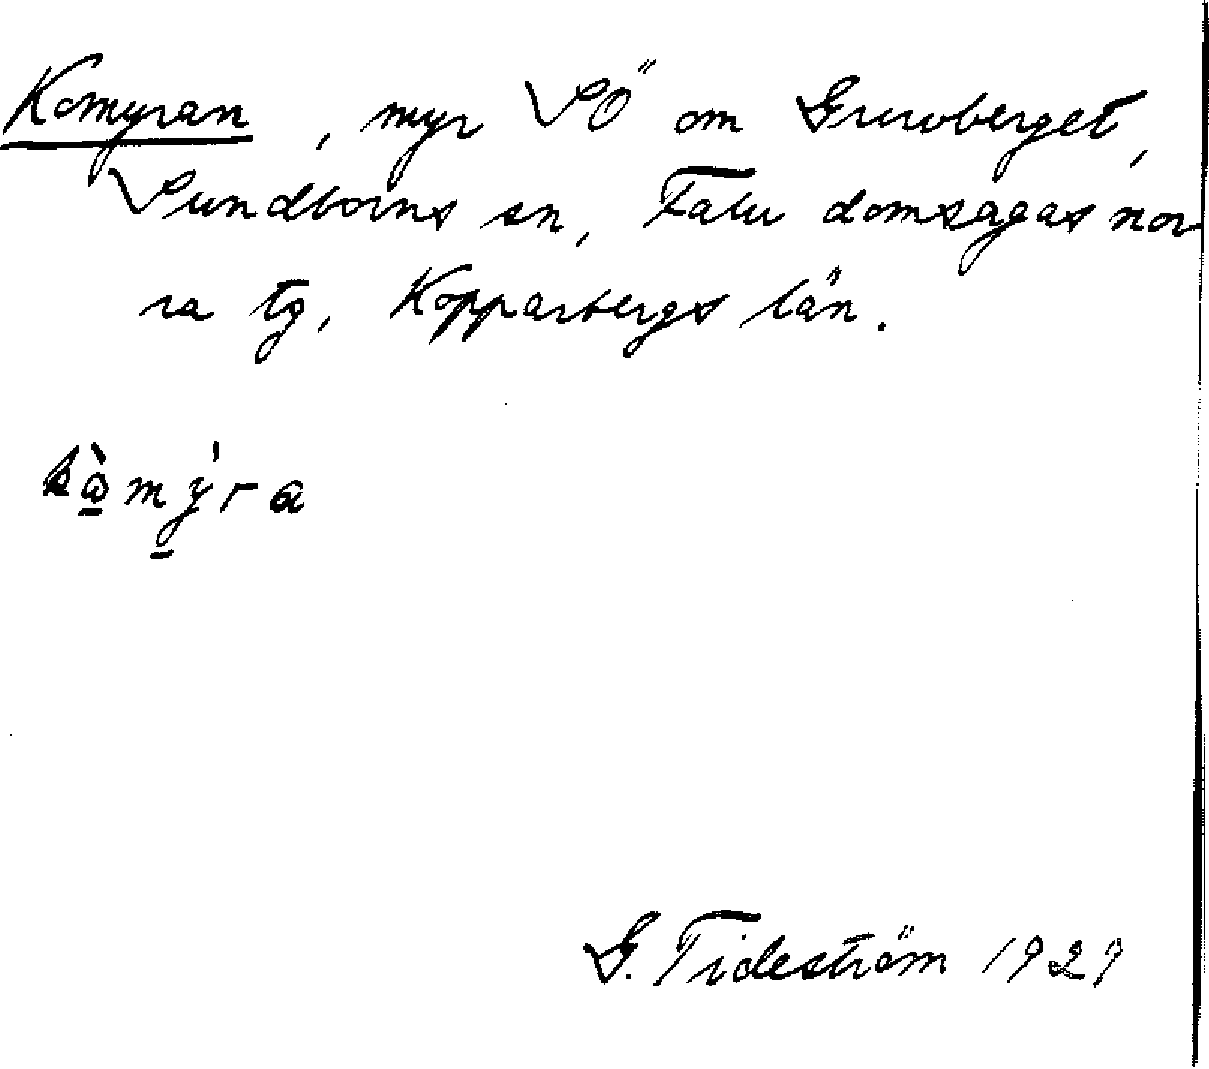 Komyran, myr SÖ om Gruvberget,
Sundborns sn, Falu domsagas nor
ra tg, Kopparbergs län.
G. Tideström 1929